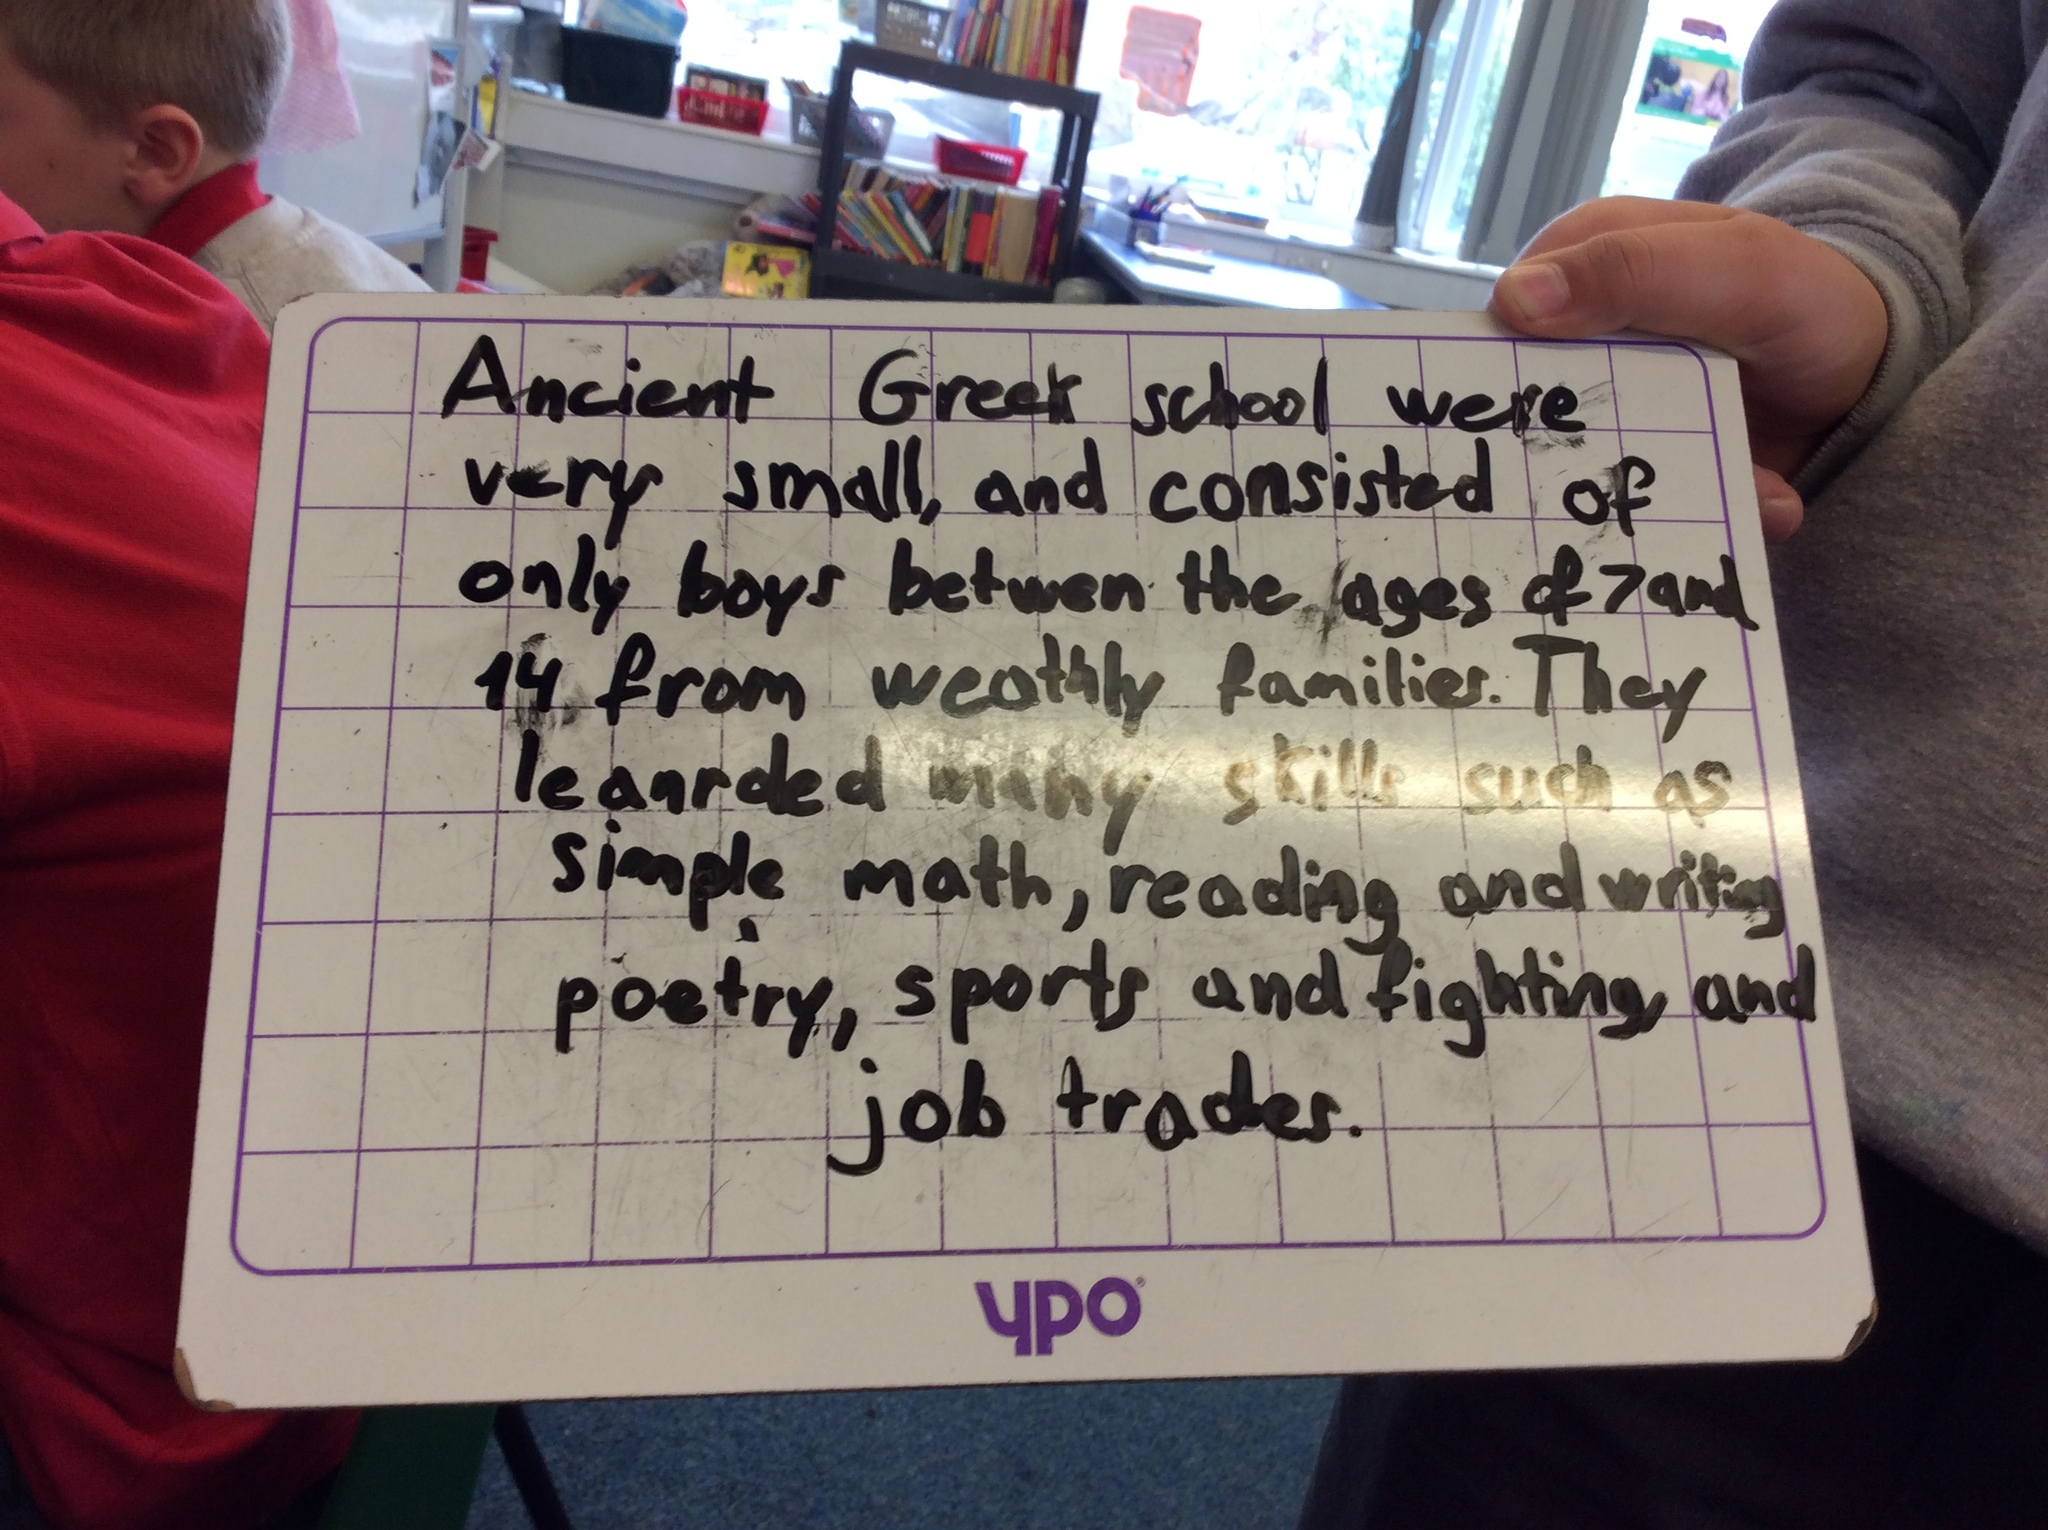 Ancient Greek school were
very small, and consisted of
only boys betwen the ages of 7 and
14 from weathly families. They
leanrded many skills such as
simple math, reading and writing
poetry, sports and fighting, and
job trades.
ypo